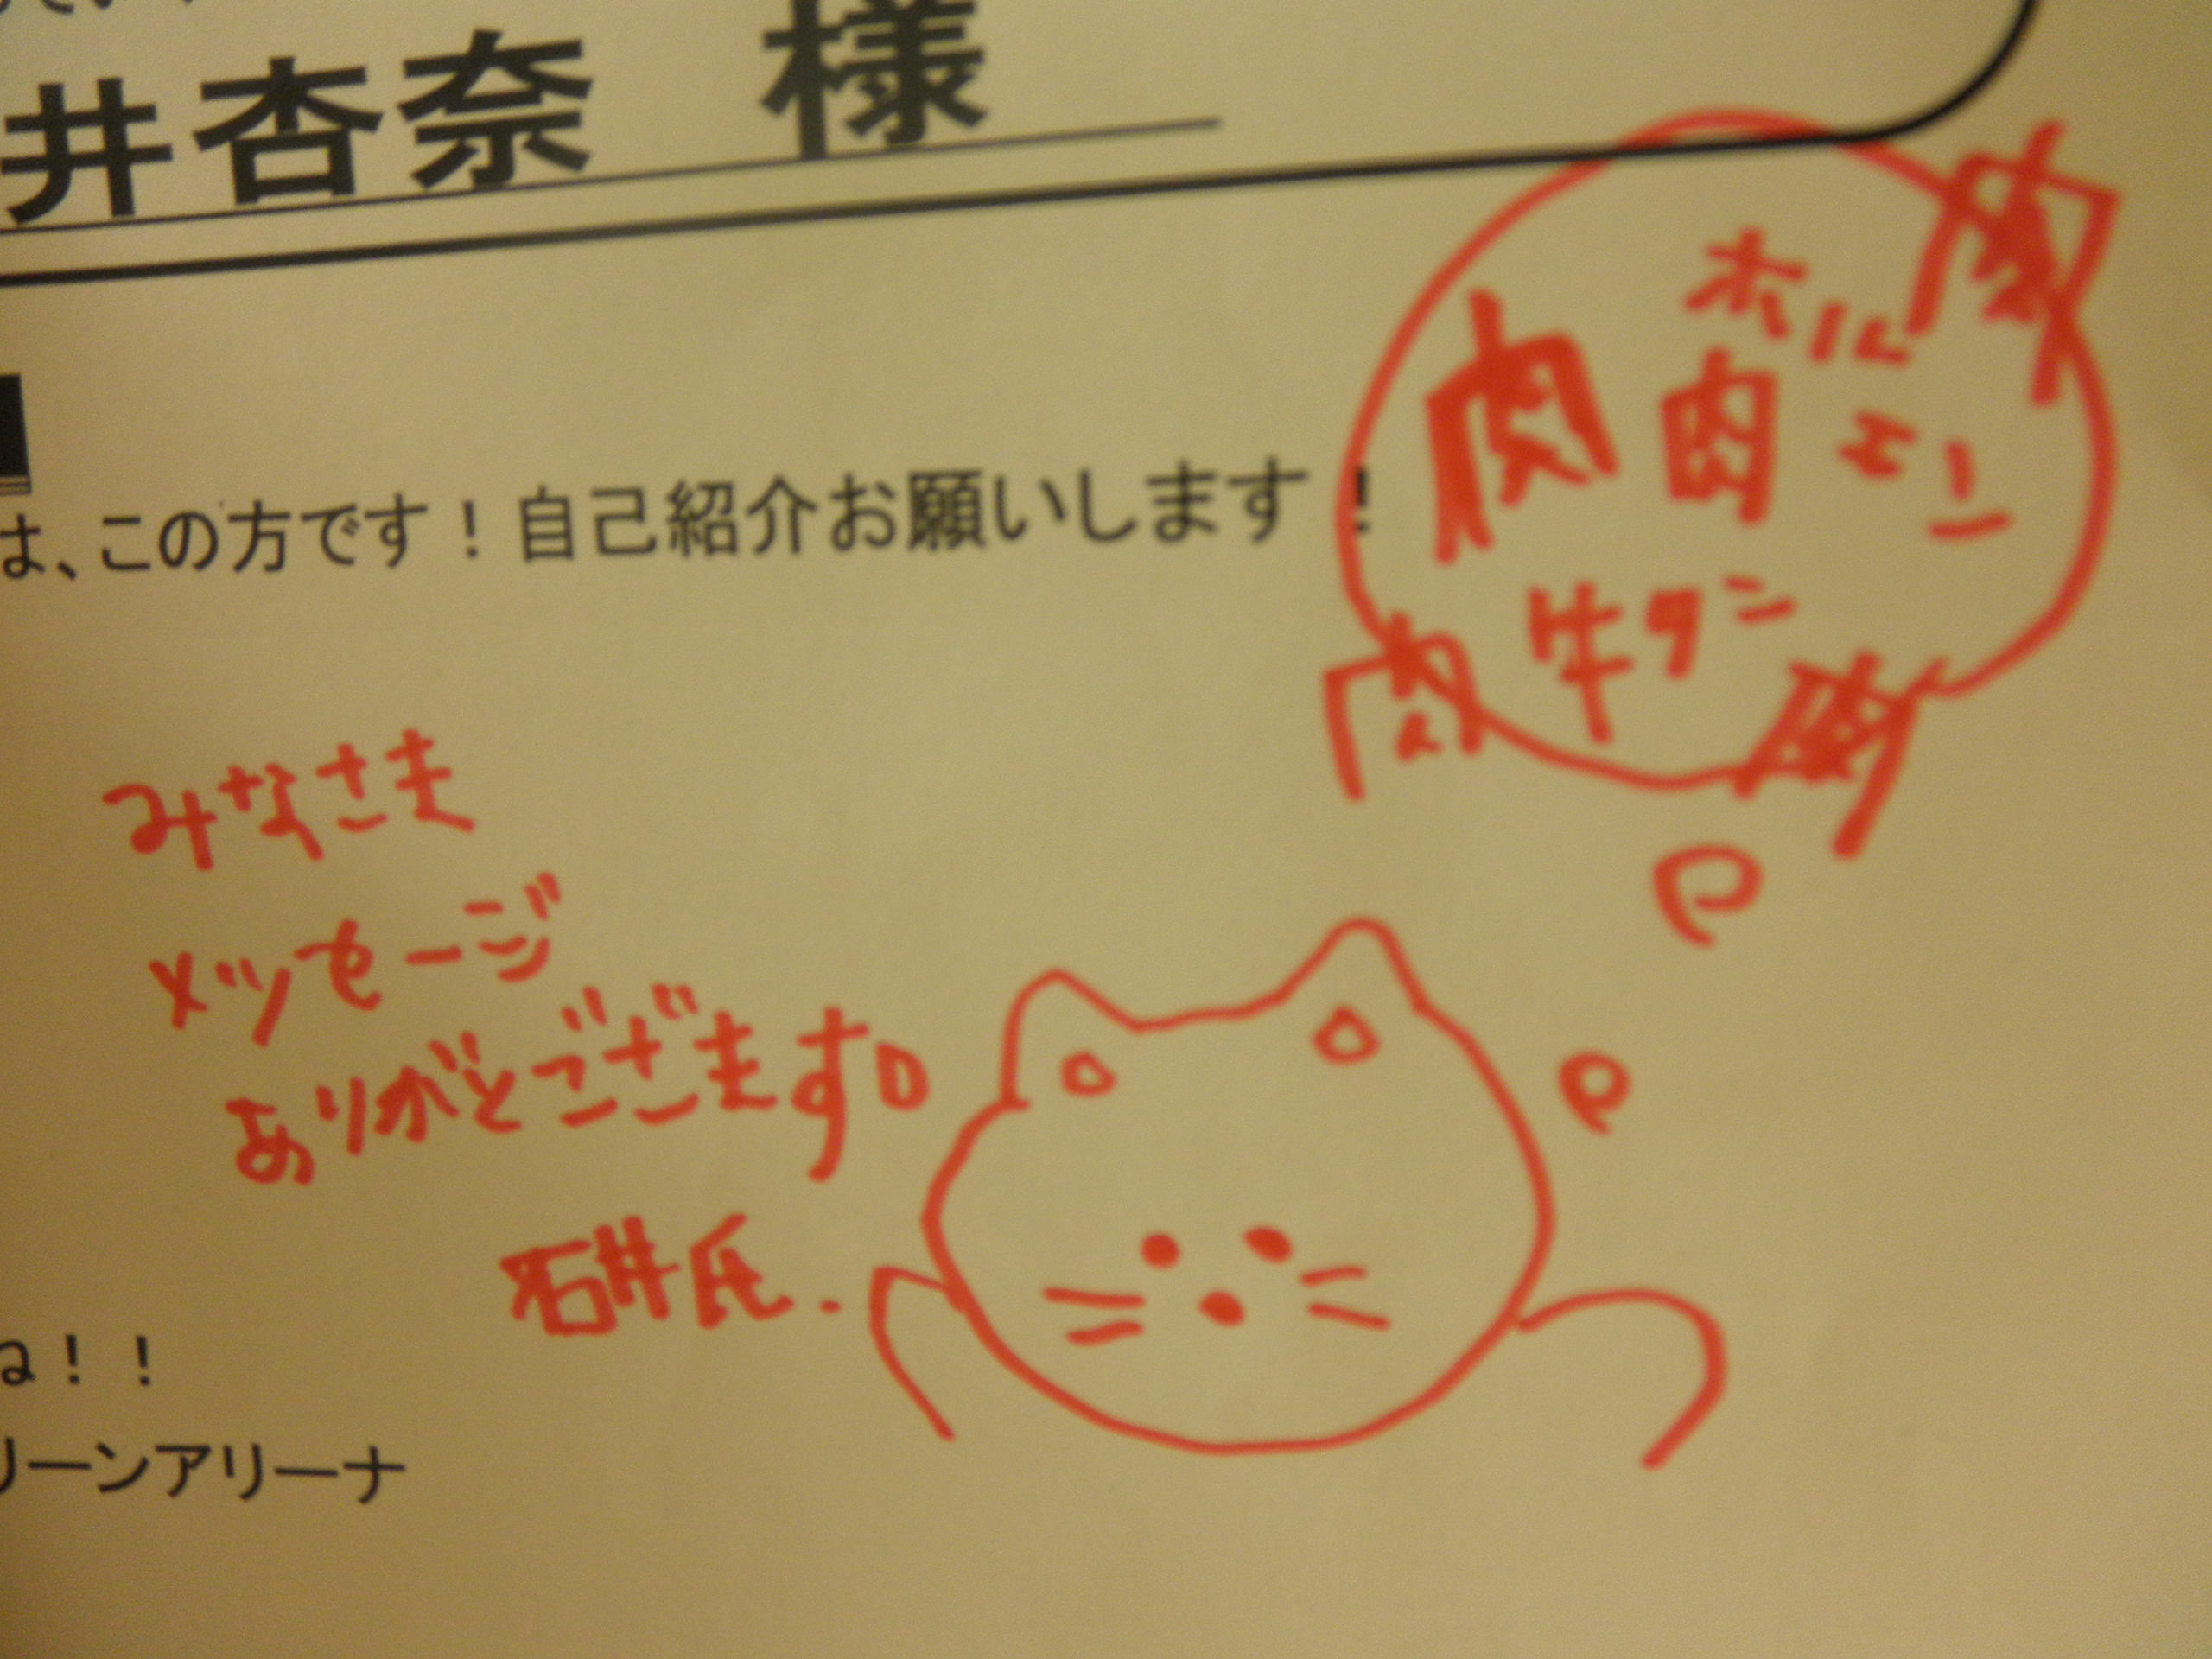 井杏奈 様
は、この方です！自己紹介お願いします！
肉 肉 ホルモン 肉
肉 牛タン 肉
みなさま
メッセージ
ありがとござます。
石井氏.
ね！！
リーンアリーナ